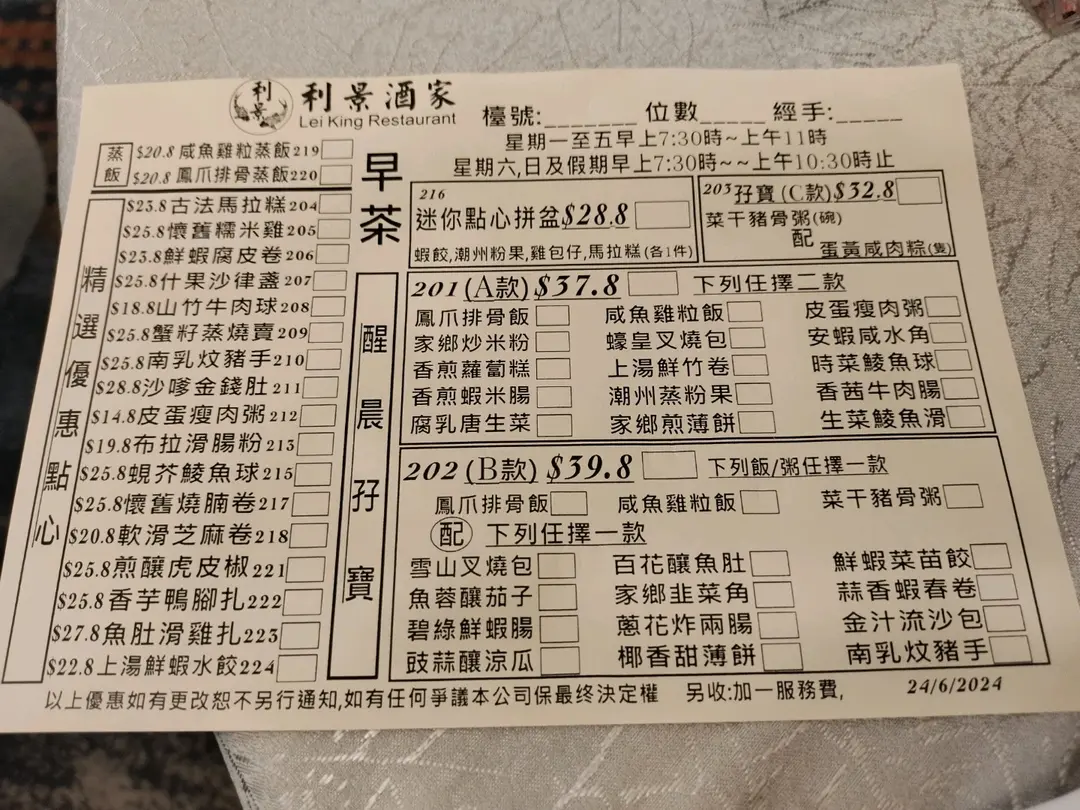 利景
利景酒家
Lei King Restaurant
檯號:________ 位數_____ 經手:_____
星期一至五早上7:30時~上午11時
星期六,日及假期早上7:30時~~上午10:30時止
早茶
蒸飯
$20.8 咸魚雞粒蒸飯 219
$20.8 鳳爪排骨蒸飯 220
精選優惠點心
$23.8 古法馬拉糕 204
$25.8 懷舊糯米雞 205
$23.8 鮮蝦腐皮卷 206
$25.8 什果沙律盞 207
$18.8 山竹牛肉球 208
$25.8 蟹籽蒸燒賣 209
$25.8 南乳炆豬手 210
$28.8 沙嗲金錢肚 211
$14.8 皮蛋瘦肉粥 212
$19.8 布拉滑腸粉 213
$25.8 蜆芥鯪魚球 215
$25.8 懷舊燒腩卷 217
$20.8 軟滑芝麻卷 218
$25.8 煎釀虎皮椒 221
$25.8 香芋鴨腳扎 222
$27.8 魚肚滑雞扎 223
$22.8 上湯鮮蝦水餃 224
醒晨孖寶
216
迷你點心拼盆 $28.8
蝦餃,潮州粉果,雞包仔,馬拉糕(各1件)
203 孖寶 (C款) $32.8
菜干豬骨粥(碗)
配
蛋黃咸肉粽(隻)
201 (A款) $37.8 下列任擇二款
鳳爪排骨飯 咸魚雞粒飯 皮蛋瘦肉粥
家鄉炒米粉 蠔皇叉燒包 安蝦咸水角
香煎蘿蔔糕 上湯鮮竹卷 時菜鯪魚球
香煎蝦米腸 潮州蒸粉果 香茜牛肉腸
腐乳唐生菜 家鄉煎薄餅 生菜鯪魚滑
202 (B款) $39.8 下列飯/粥任擇一款
鳳爪排骨飯 咸魚雞粒飯 菜干豬骨粥
配 下列任擇一款
雪山叉燒包 百花釀魚肚 鮮蝦菜苗餃
魚蓉釀茄子 家鄉韭菜角 蒜香蝦春卷
碧綠鮮蝦腸 蔥花炸兩腸 金汁流沙包
豉蒜釀涼瓜 椰香甜薄餅 南乳炆豬手
以上優惠如有更改恕不另行通知,如有任何爭議本公司保最終決定權 另收:加一服務費, 24/6/2024